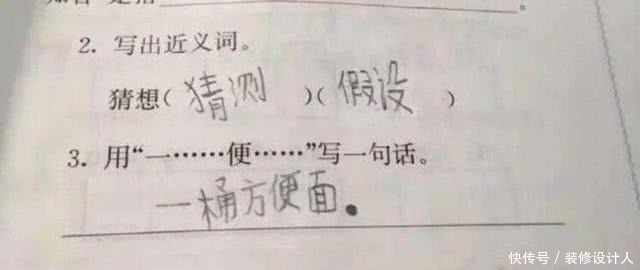 2. 写出近义词。
猜想(猜测)(假设)
3. 用“一……便……”写一句话。
一桶方便面。
快传号/装修设计人